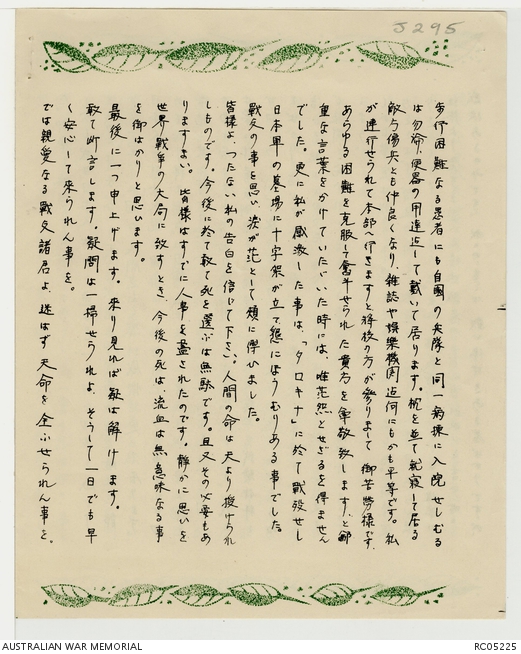 J295
歩行困難なる患者にも自国の兵隊と同一病棟に入院せしむる
は勿論、便器の用達迄して戴いて居ります。枕を並べ就寝して居る
敵方傷兵とも仲良くなり、雑誌や娯楽機関迄何にもかも平等です。私
が連行せられて本部へ行きますと将校の方が参りまして御苦労様です。
あらゆる困難を克服して奮斗せられた貴方を尊敬致します、と鄭
重な言葉をかけていたゞいた時には、唯茫然とせざるを得ません
でした。更に私が感激した事は、「タロキナ」に於て戦歿せし
日本軍の墓場に十字架が立て懇にほうむりある事でした。
戦友の事を思い、涙が茫として頬に傳ひました。
皆様よ、つたない私の告白を信じて下さい。人間の命は天より授けられ
しものです。今後に於て敢て死を選ぶは無駄です。且又その必要もあ
りますまい。皆様はすでに人事を盡されたのです。静かに思いを
世界戦争の大局に致すとき、今後の死は、流血は無意味なる事
を御はかりと思います。
最後に一つ申上げます。來り見れば疑は解けます。
敢て断言します。疑問は一掃せられよ、そうして一日でも早
く安心して来られん事を。
では親愛なる戦友諸君よ、迷はず天命を全ふせられん事を。
AUSTRALIAN WAR MEMORIAL
RC05225